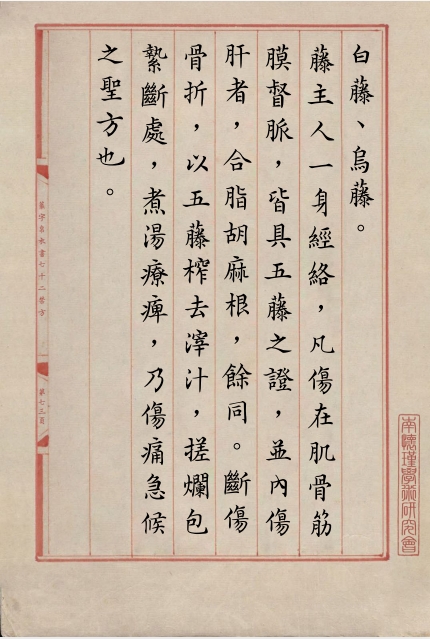 白藤、烏藤。
藤主人一身經絡，凡傷在肌骨筋
膜督脈，皆具五藤之證，並內傷
肝者，合脂胡麻根，餘同。斷傷
骨折，以五藤榨去滓汁，搓爛包
紮斷處，煮湯療痺，乃傷痛急候
之聖方也。
第七五頁
南懷瑾學術研究會